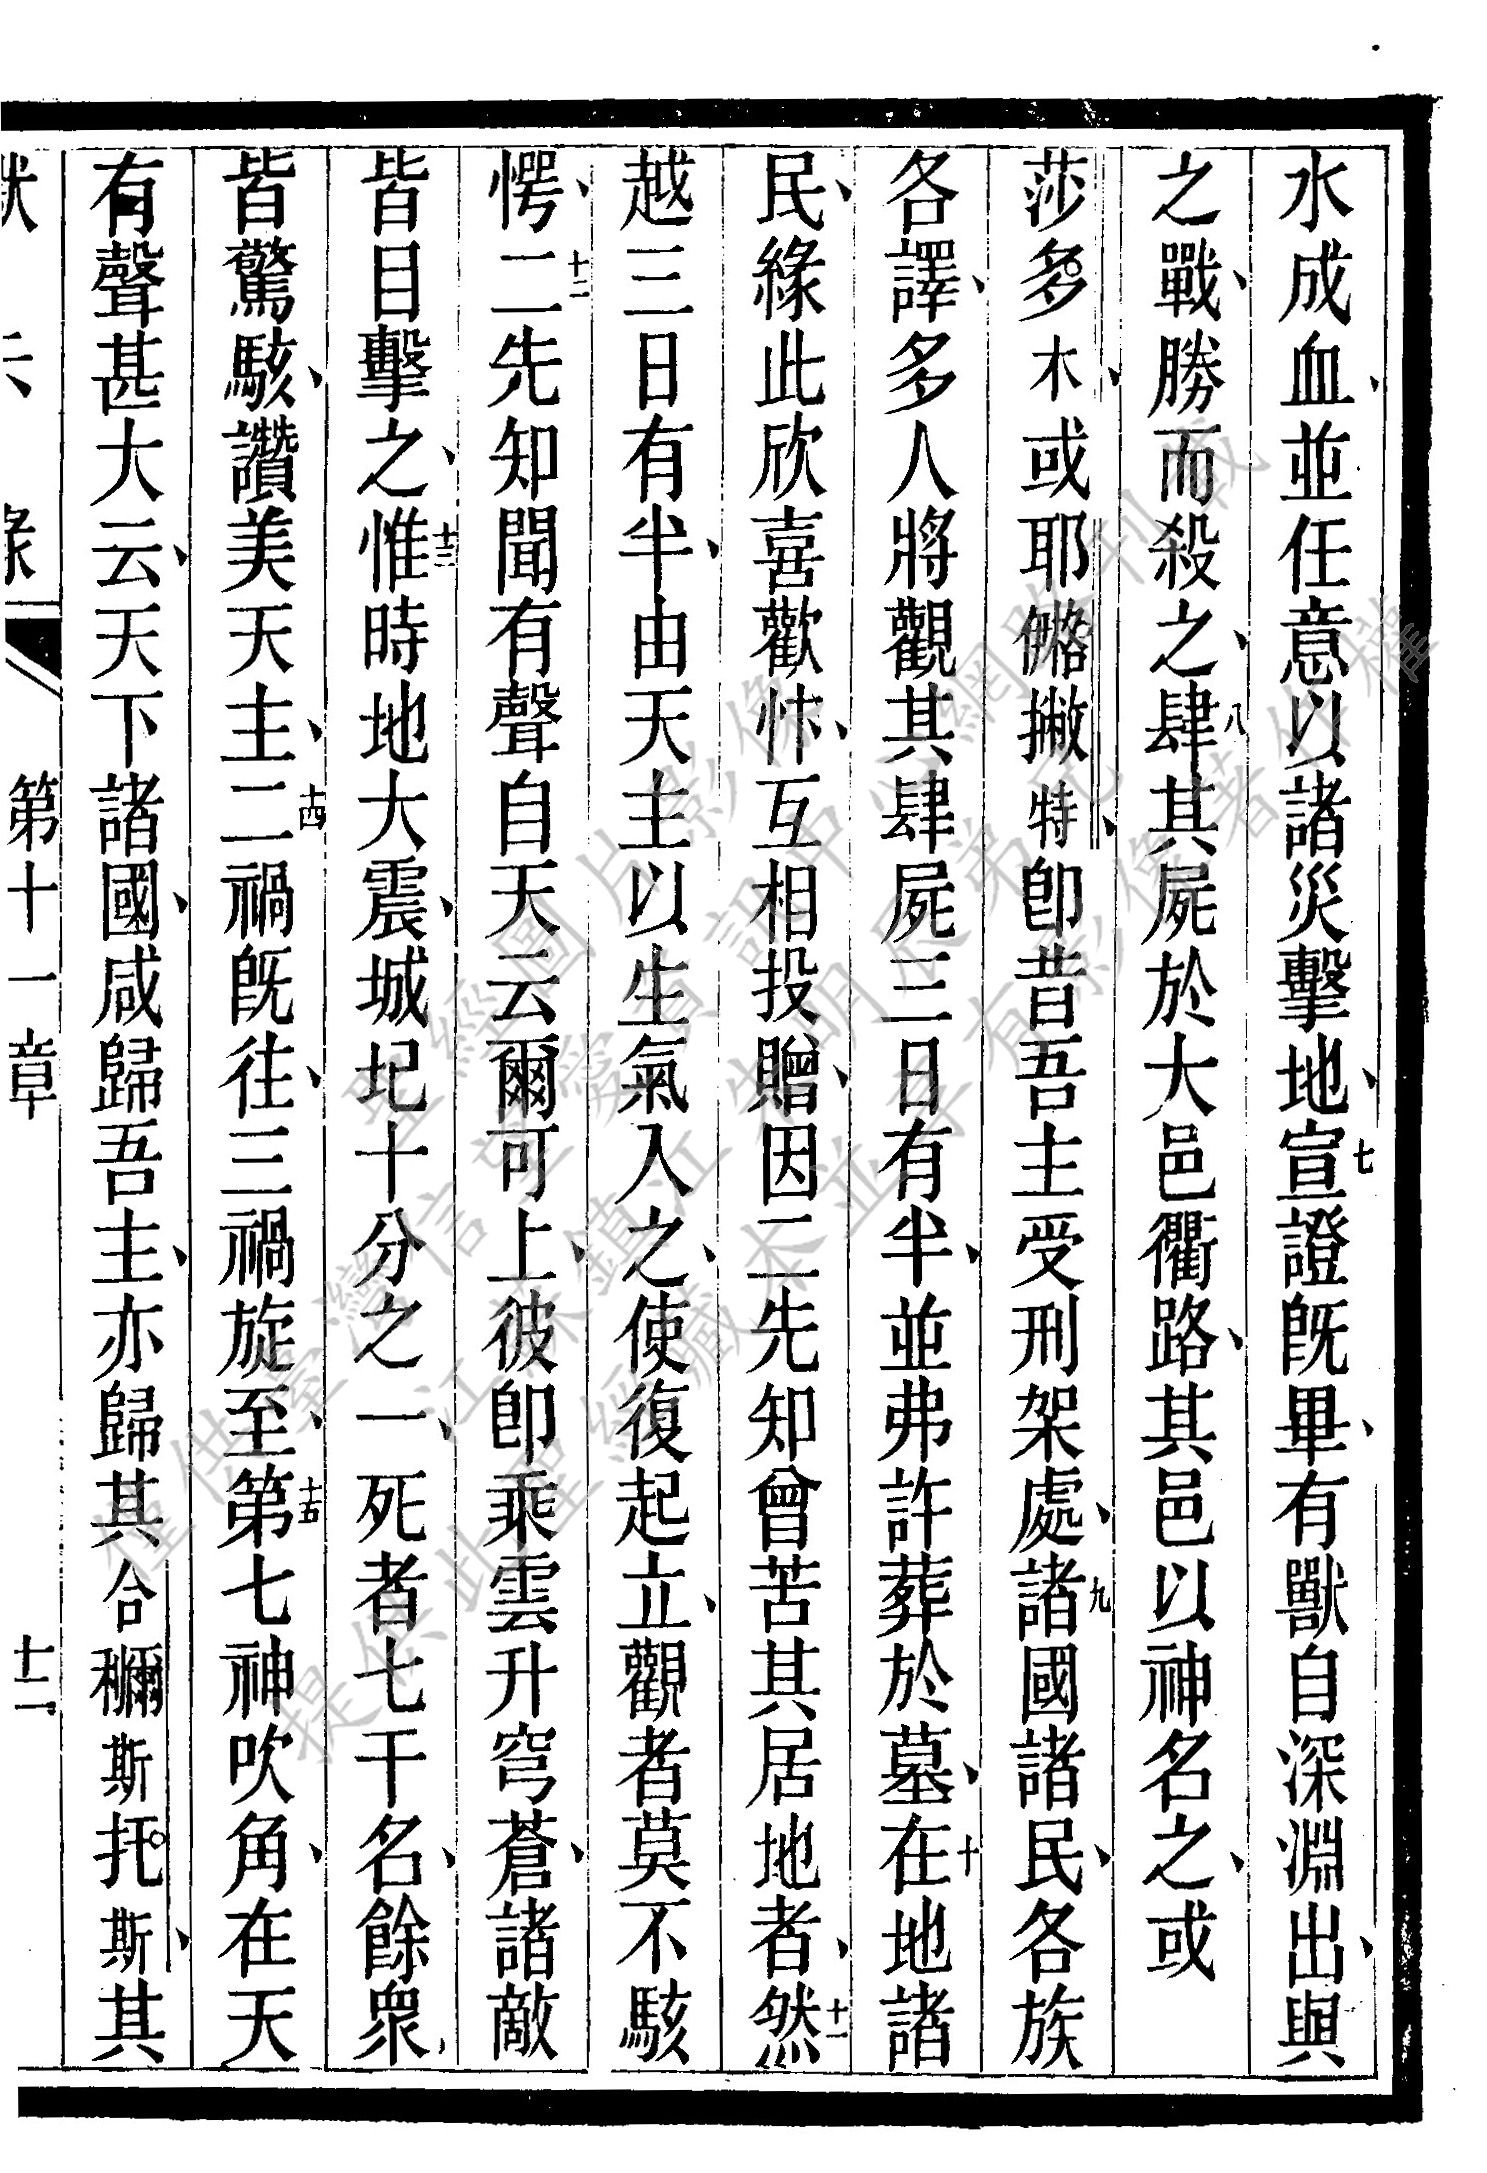 水成血、並任意以諸災擊地、七宣證旣畢、有獸自深淵出、與
之戰、勝而殺之、八肆其屍於大邑衢路、其邑以神名之、或
莎多木、或耶𠌥撇特、卽昔吾主受刑架處、九諸國諸民、各族
各譯、多人將觀其肆屍三日有半、並弗許葬於墓、十在地諸
民、緣此欣喜歡忭、互相投贈、因二先知曾苦其居地者、十一然
越三日有半、由天主以生氣入之、使復起立、觀者莫不駭
愕、十二二先知聞有聲自天云、爾可上、彼卽乘雲升穹蒼、諸敵
皆目擊之、十三惟時地大震、城圮十分之一、死者七千名、餘衆
皆驚駭、讚美天主、十四二禍旣往、三禍旋至、十五第七神吹角、在天
有聲甚大云、天下諸國、咸歸吾主、亦歸其合穪斯托斯、其
第十一章
十二